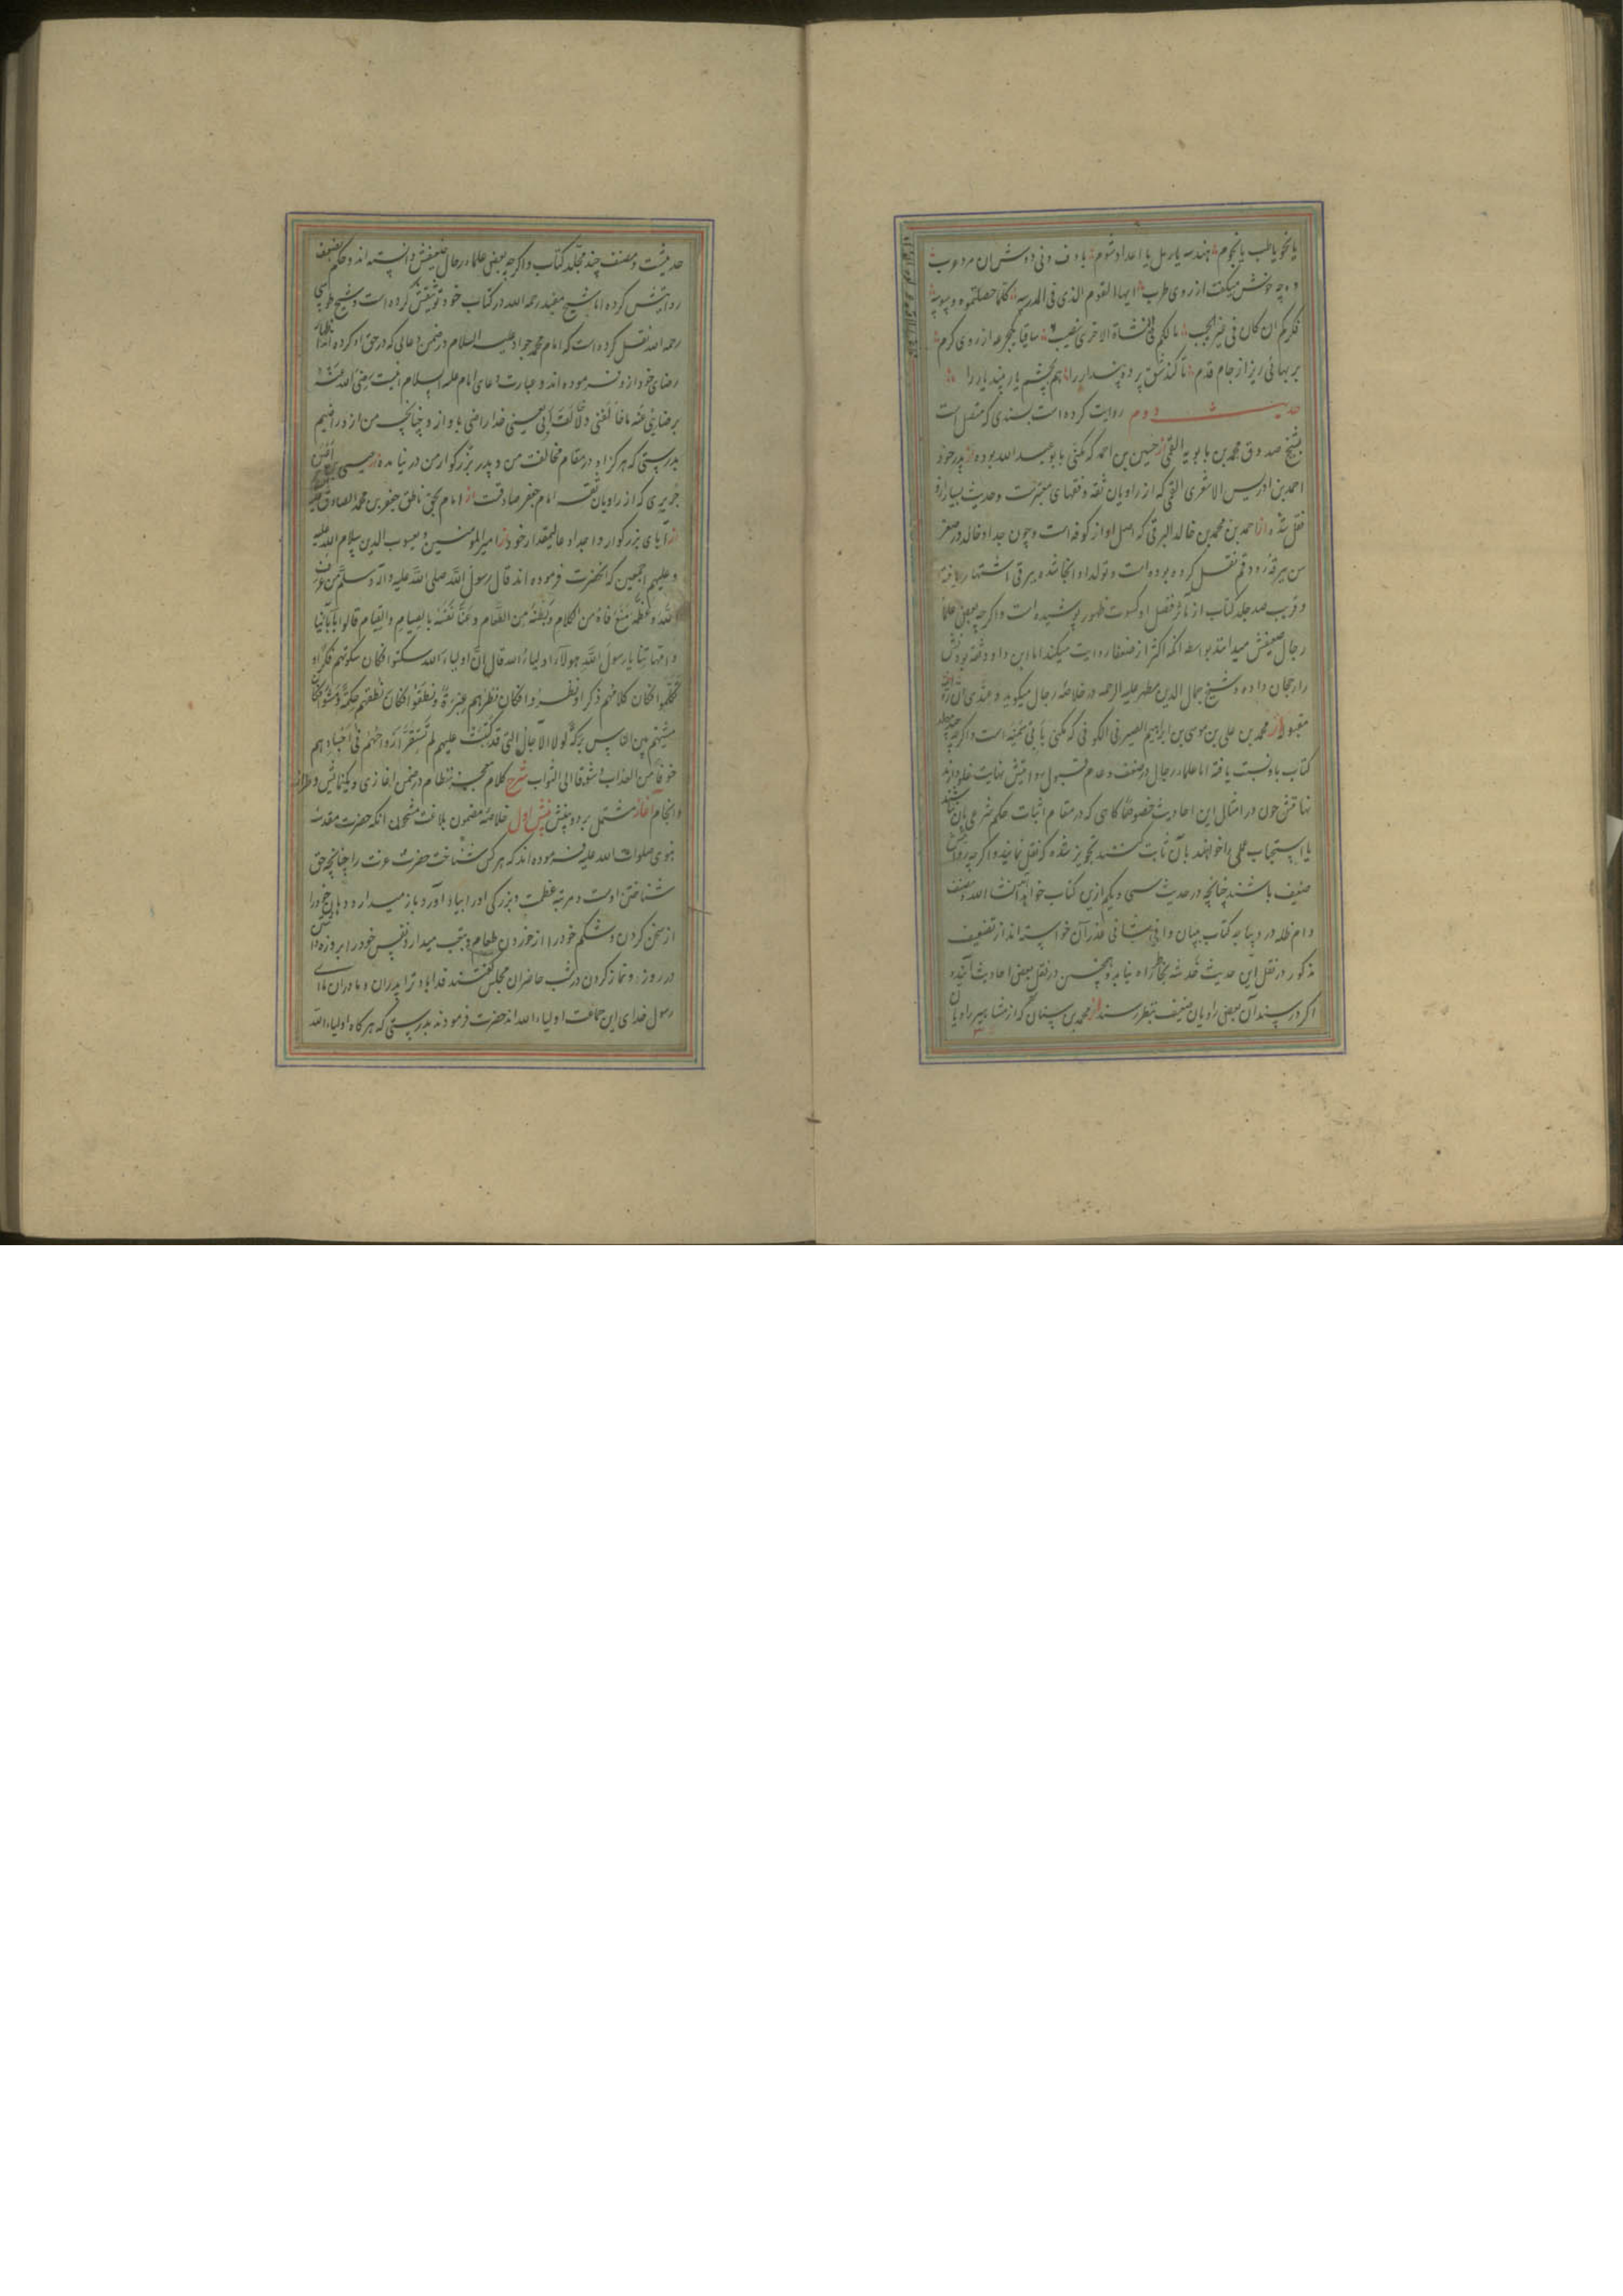 یا نحو یا طب یا نجوم هندسه یا رمل یا اعداد شوم با دف و نی دوش آن مرد عرب
وه چه خوش میگفت از روی طرب ایها القوم الذی فی المدرسه کلما حصلتموه وسوسه
فکرکم ان کان فی غیر الحبیب مالکم فی النشاة الاخری نصیب ساقیا یکجرعه از روی کرم
بر بهائی ریز از جام قدم تا کند شق پرده پندار را هم بچشم یار بیند یار را
حدیث دوم روایت کرده است بسندی که متصل است
بشیخ صدوق محمد بن بابویه القمی از حسین بن احمد که مکنی بابو عبد الله بوده از پدر خود
احمد بن ادریس الاشعری القمی که از راویان ثقه و فقهای معتبرست و حدیث بسیار ازو
نقل شده از احمد بن محمد بن خالد البرقی که اصل او از کوفه است و چون جد او خالد در صغر
سن ببرقه رود قم نقل کرده بوده است و تولد او انجا شده ببرقی اشتهار یافته
و قریب صد جلد کتاب از مآثر فضل او کسوت ظهور پوشیده است و اکرچه بعضی علماء
رجال ضعیفش میدانند بواسطه انکه اکثر از ضعفا روایت میکند اما ابن داود ثقه بودنش
را رجحان داده و شیخ جمال الدین مطهر علیه الرحمه در خلاصه رجال میکوید و عندی ان روایته
مقبولة از محمد بن علی بن موسی بن ابراهیم الصیرفی الکوفی که مکنی بابی سمینه است و اکرچه چند جلد
کتاب باو نسبت یافته اما علماء رجال در ضعف و عدم قبول روایتش نهایت غلو دارند
نهایتش چون در امثال این احادیث خصوصا کاهی که در مقام اثبات حکم شرعی بان نباشند
یا استحباب عملی را خواهند بآن ثابت کنند تجویز شده که نقل نمایند و اکرچه رواتش
ضعیف باشند چنانچه در حدیث سی و یکم ازین کتاب خواهد آمد انشا الله و مصنف
دام ظله در دیباجه کتاب ببیان وافی شافی عذر آن خواسته اند از تضعیف
مذکور در نقل این حدیث خدشه بخاطر راه نیابد و همچنین در نقل بعضی احادیث آینده
اکر در سند آن بعضی راویان ضعیف بنظر رسند از محمد بن سنان که از مشاهیر راویان
حدیثست و مصنف چند مجلد کتاب و اکرچه بعضی علماء رجال ضعیفش دانسته اند و حکم بضعف
روایتش کرده اما شیخ مفید رحمه الله در کتاب خود توثیقش کرده است و شیخ طوسی
رحمه الله نقل کرده است که امام محمد جواد علیه السلام در ضمن دعائی که در حق او کرده اند اظهار
رضای خود ازو فرموده اند و عبارت دعای امام علیه السلام اینست رضی الله عنه
برضایی عنه ما خالفنی و لا خالف ابی یعنی خدا راضی باد از و چنانچه من از و راضیم
بدرستی که هرکز او در مقام مخالفت من و پدر بزرکوار من در نیامده از عیسی
جریری که از راویان ثقه امام جعفر صادقست از امام بحق ناطق جعفر بن محمد الصادق علیه
از آبای بزرکوار و اجداد عالیمقدار خود از امیر المؤمنین و یعسوب الدین سلام الله علیه
و علیهم اجمعین که انحضرت فرموده اند قال رسول الله صلی الله علیه و آله و سلم من عرف
الله و عظمه منع فاه من الکلام و بطنه من الطعام و عنا نفسه بالصیام و القیام قالوا بابائنا
و امهاتنا یا رسول الله هولآء اولیاء الله قال ان اولیاء الله سکتوا فکان سکوتهم فکرا و
تکلموا فکان کلامهم ذکرا و نظروا فکان نظرهم عبرة و نطقوا فکان نطقهم حکمة و مشوا فکان
مشیهم بین الناس برکة لولا الآجال التی قد کتبت علیهم لم تستقر ارواحهم فی اجسادهم
خوفا من العذاب و شوقا الی الثواب شرح کلام معجز نظام در ضمن اغازی و یکنمایش و طراز
و انجام آغاز مشتمل بر دو بینش بینش اول خلاصه مضمون بلاغت مشحون انکه حضرت مقدسه
نبوی صلوات الله علیه فرموده اند که هر کس شناخت حضرت عزت را چنانچه حق
شناختن اوست و مرتبه عظمت و بزرکی او را بیاد آورد باز میدارد دهان خود را
از سخن کردن و شکم خود را از خوردن طعام و بتعب میدارد نفس خود را بروزه داشتن
در روز و نماز کردن در شب حاضران مجلس کفتند فدا باد ترا پدران و مادران ما ای
رسول خدا این جماعت اولیاء الله اند حضرت فرمودند بدرستی که هرکاه اولیاء الله